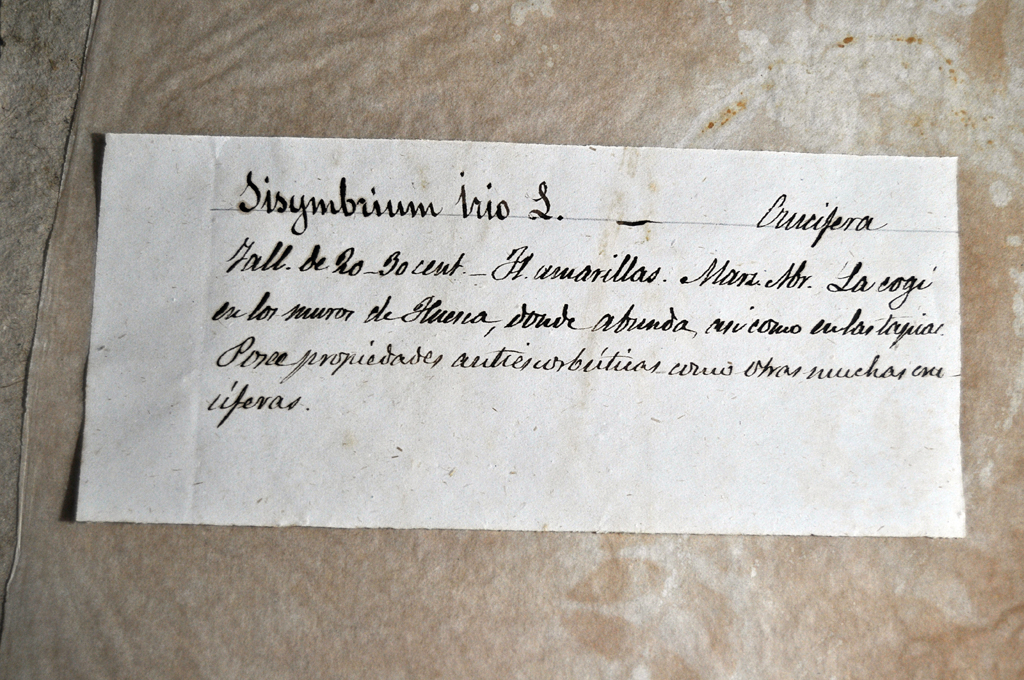 Sisymbrium irio L. — Crucifera
Tall. de 20-30 cent. - Fl. amarillas. Marz. Abr. La cogí
en los muros de Huesca, donde abunda, asi como en las tapias.
Posee propiedades antiescorbúticas como otras muchas cru-
cíferas.